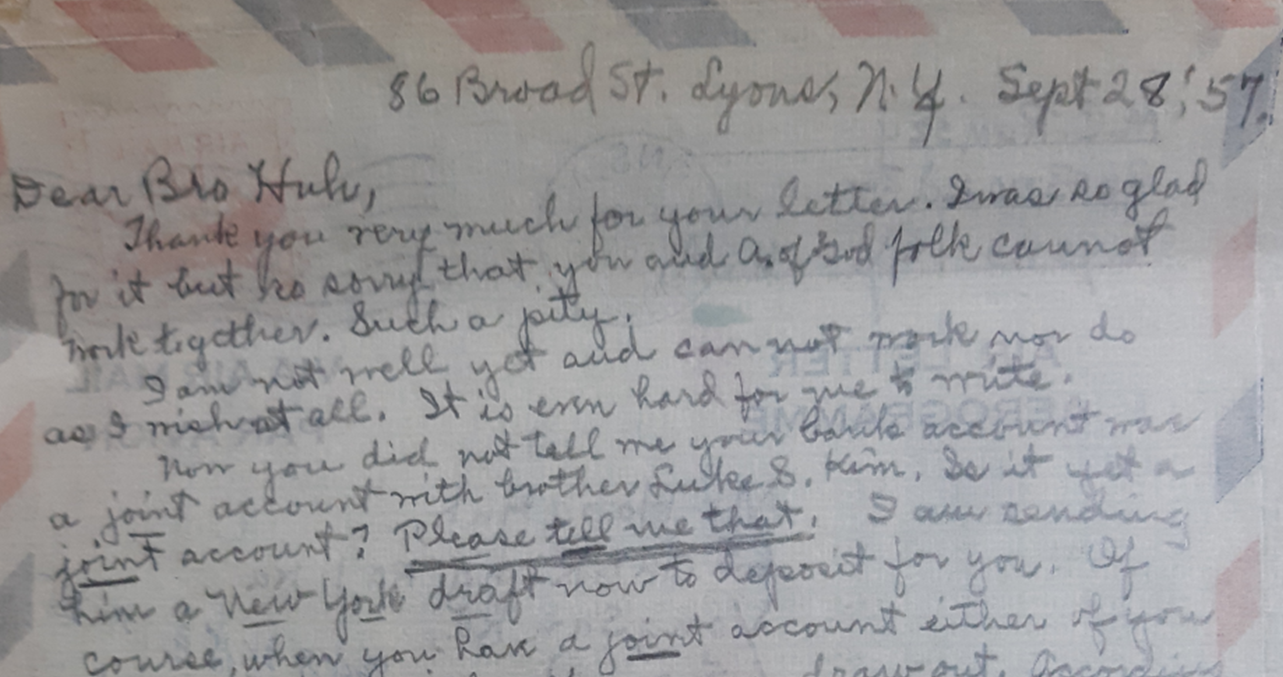 86 Broad St. Lyons, N.Y. Sept 28, '57.
Dear Bro Huh,
Thank you very much for your letter. I was so glad
for it but so sorry that you and A. of God folk cannot
work together. Such a pity.
I am not well yet and can not work nor do
as I wish at all. It is even hard for me to write.
Now you did not tell me your bank account was
a joint account with brother Luke S. Kim. Is it yet a
joint account? Please tell me that. I am sending
him a New York draft now to deposit for you. Of
course, when you have a joint account either of you
draw out. According